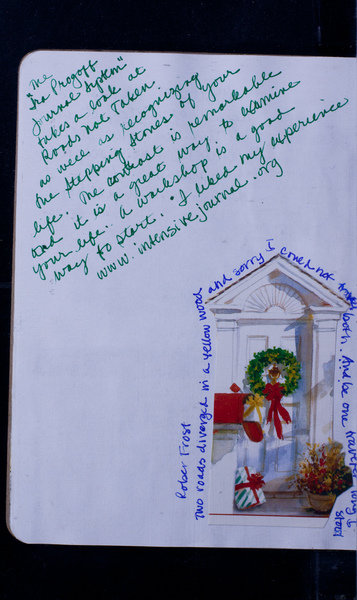 The
"Ira Progoff
Journal System"
takes a look at
Roads not Taken
as well as recognizing
the Stepping Stones of your
life. The contrast is remarkable
and it is a great way to examine
your life. A workshop is a good
way to start. I liked my experience
www.intensivejournal.org
Rober Frost
Two roads diverged in a yellow wood
and sorry I could not
travel both. And be one traveler
long I
stood